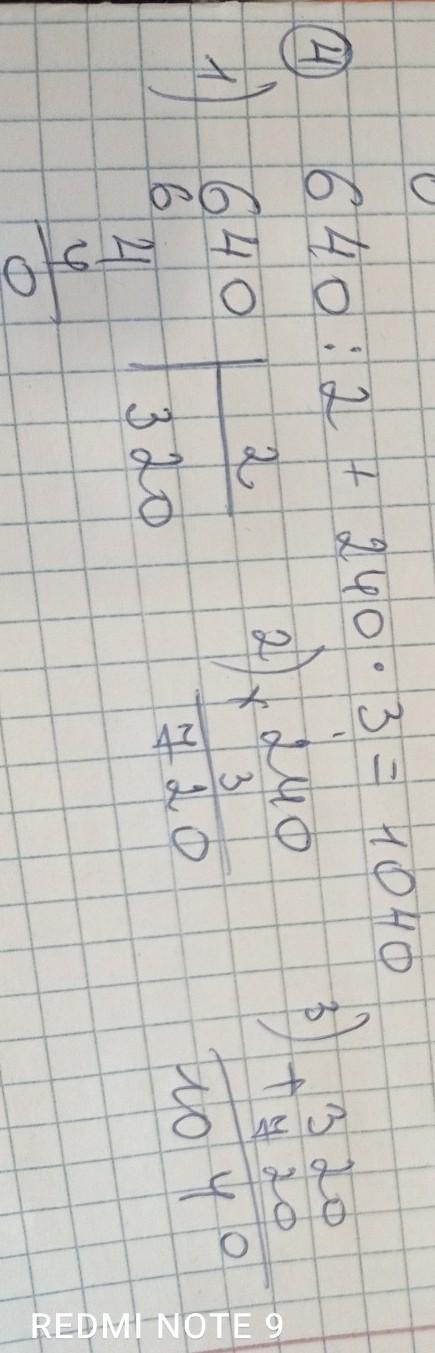 ④ 640 : 2 + 240 · 3 = 1040
1) 640 | 2
6 320
4
4
0
2) × 240
3
720
3) + 320
720
1040
REDMI NOTE 9